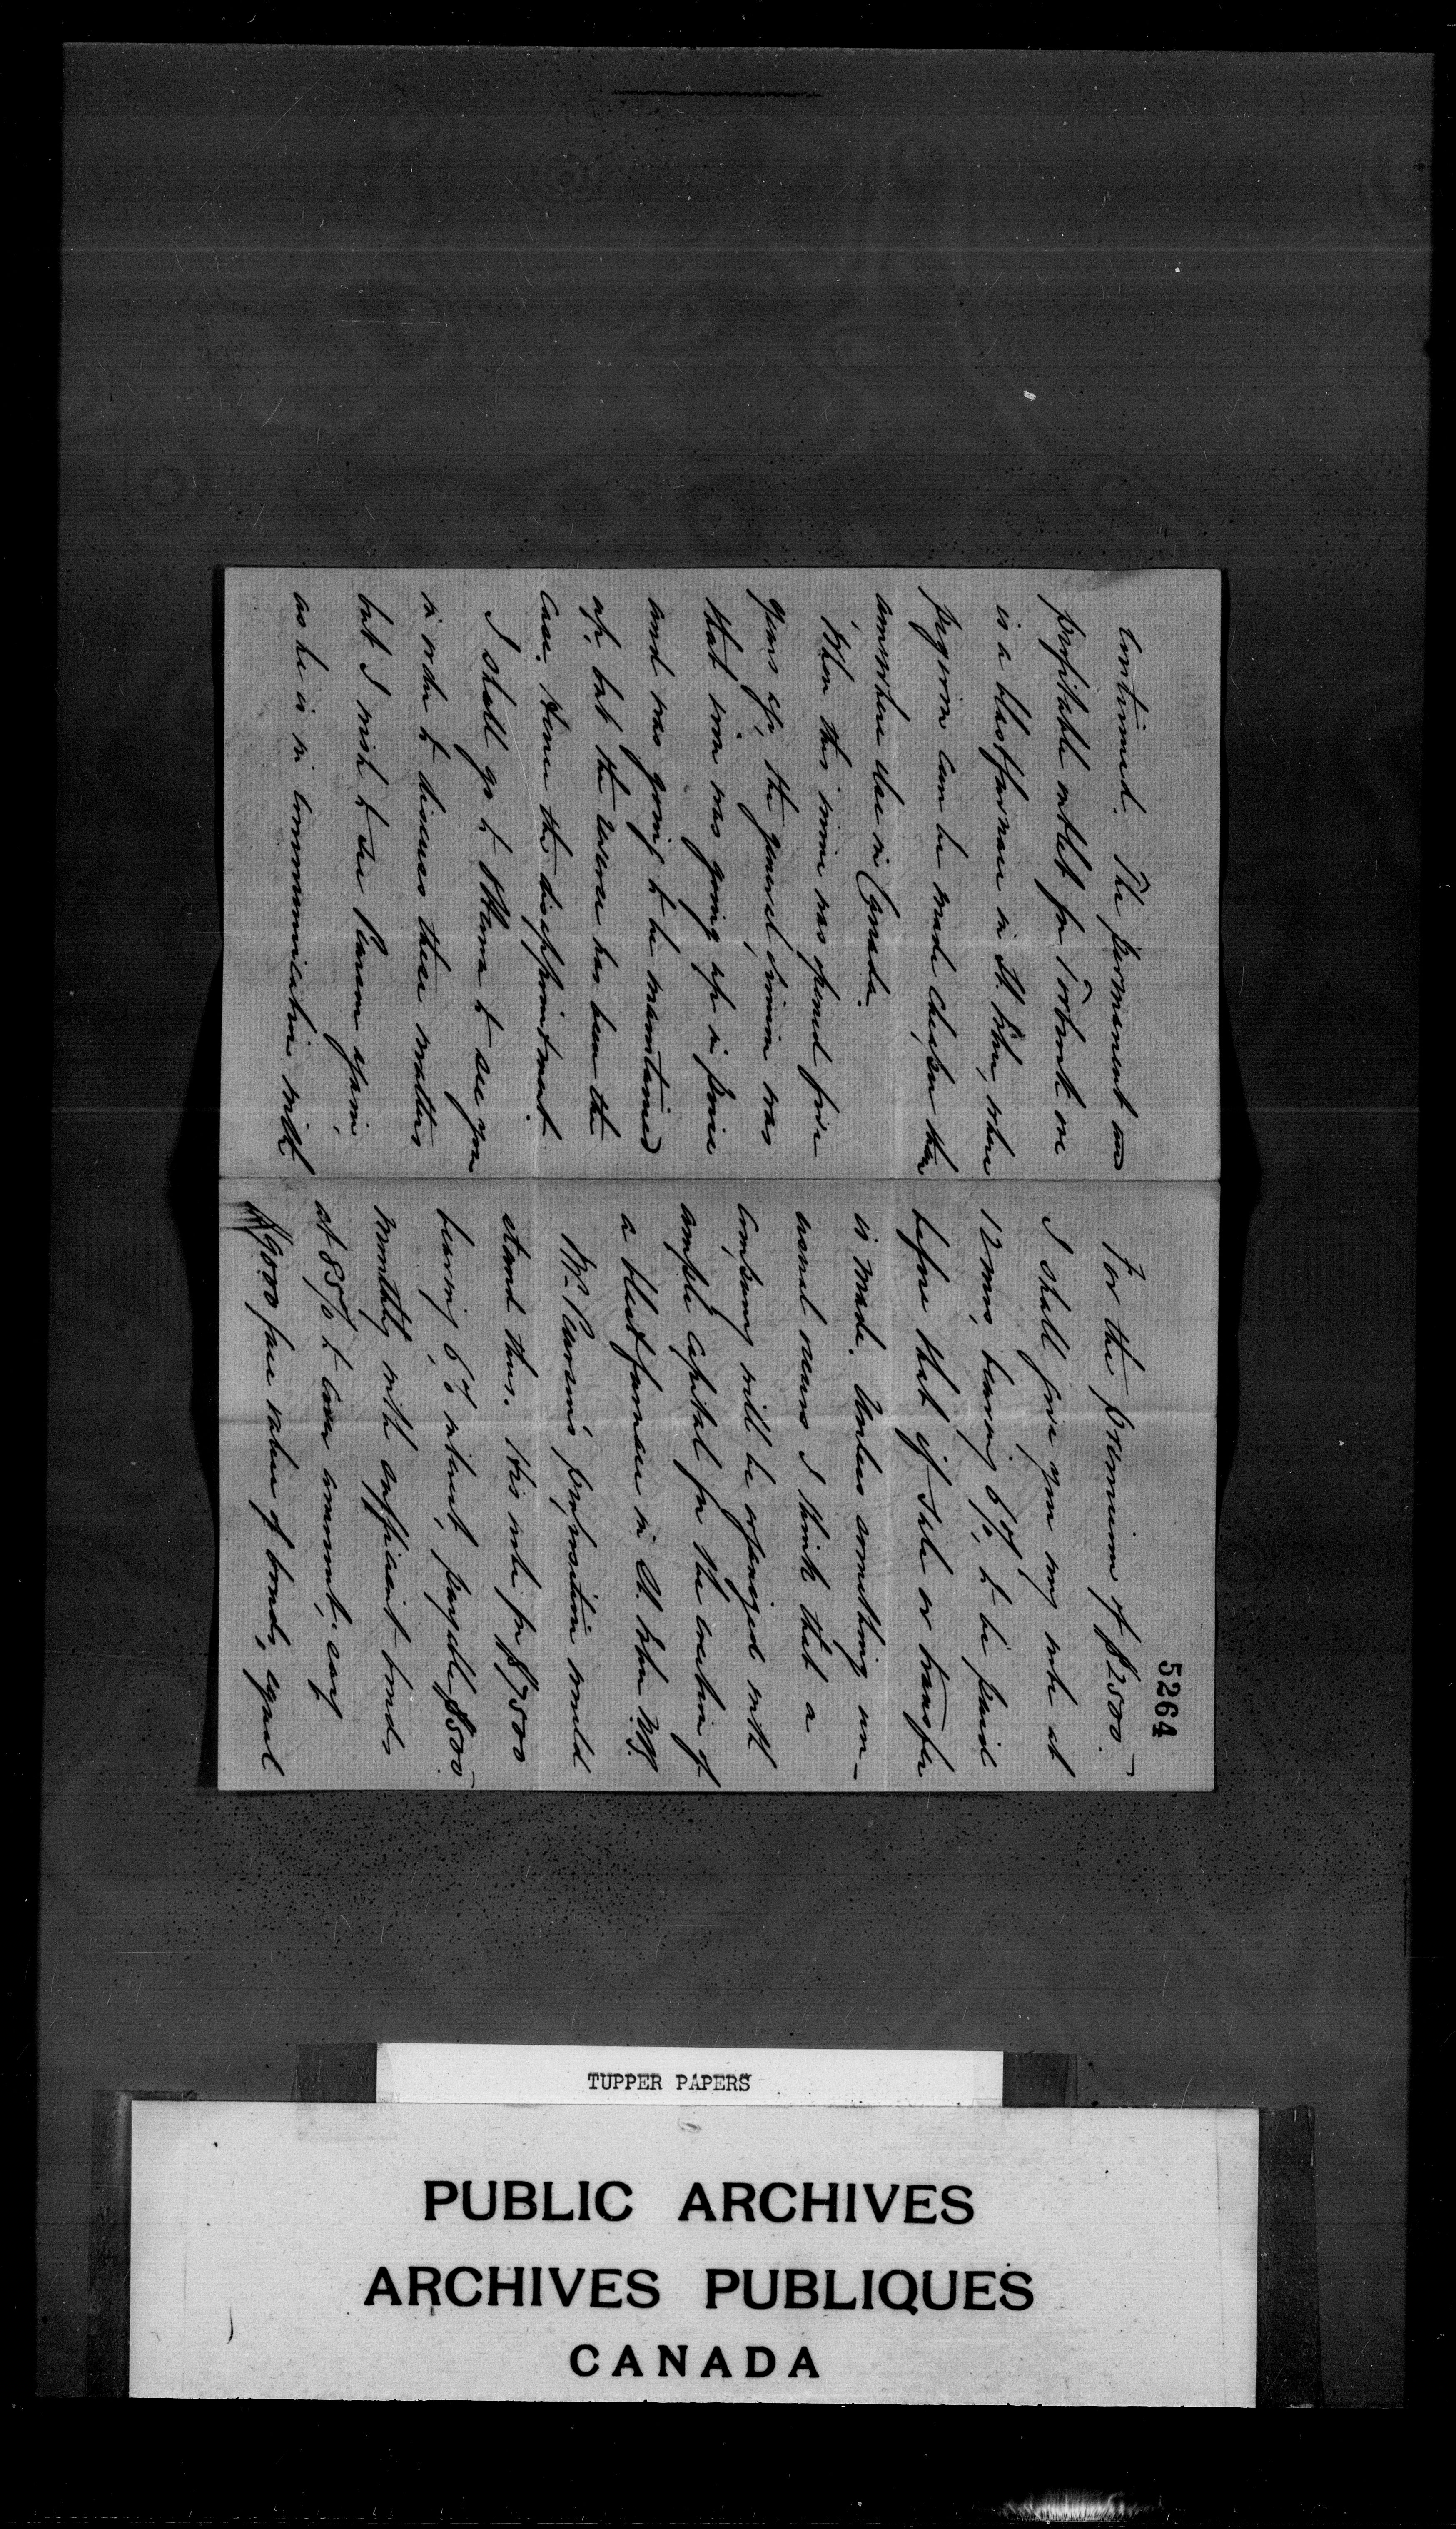 continued. The permanent and
profitable outlet for Torbrook ore
is a blast furnace in St. John, where
pig iron can be made cheaper than
anywhere else in Canada.
When this mine was opened five
years ago, the general opinion was
that iron was going up in price
and was going to be maintained
up, but the reverse has been the
case. Hence the disappointment.
I shall go to Ottawa to see you
in order to discuss these matters
but I wish to see Pearson again,
as he is in communication with
5264
For the premium of $2500.—
I shall give you my note at
12 mos, bearing 6%, to be paid
before that if sale or transfer
is made. Unless something un-
usual occurs I think that a
company will be organized with
ample capital for the erection of
a blast furnace in St. John N.B.
Mr. Pearson's proposition would
stand thus. His note for $7500
bearing 6% interest, payable $500.—
monthly with sufficient bonds
at 85% to cover amount, say
$9000 face value of bonds, equal
TUPPER PAPERS
PUBLIC ARCHIVES
ARCHIVES PUBLIQUES
CANADA